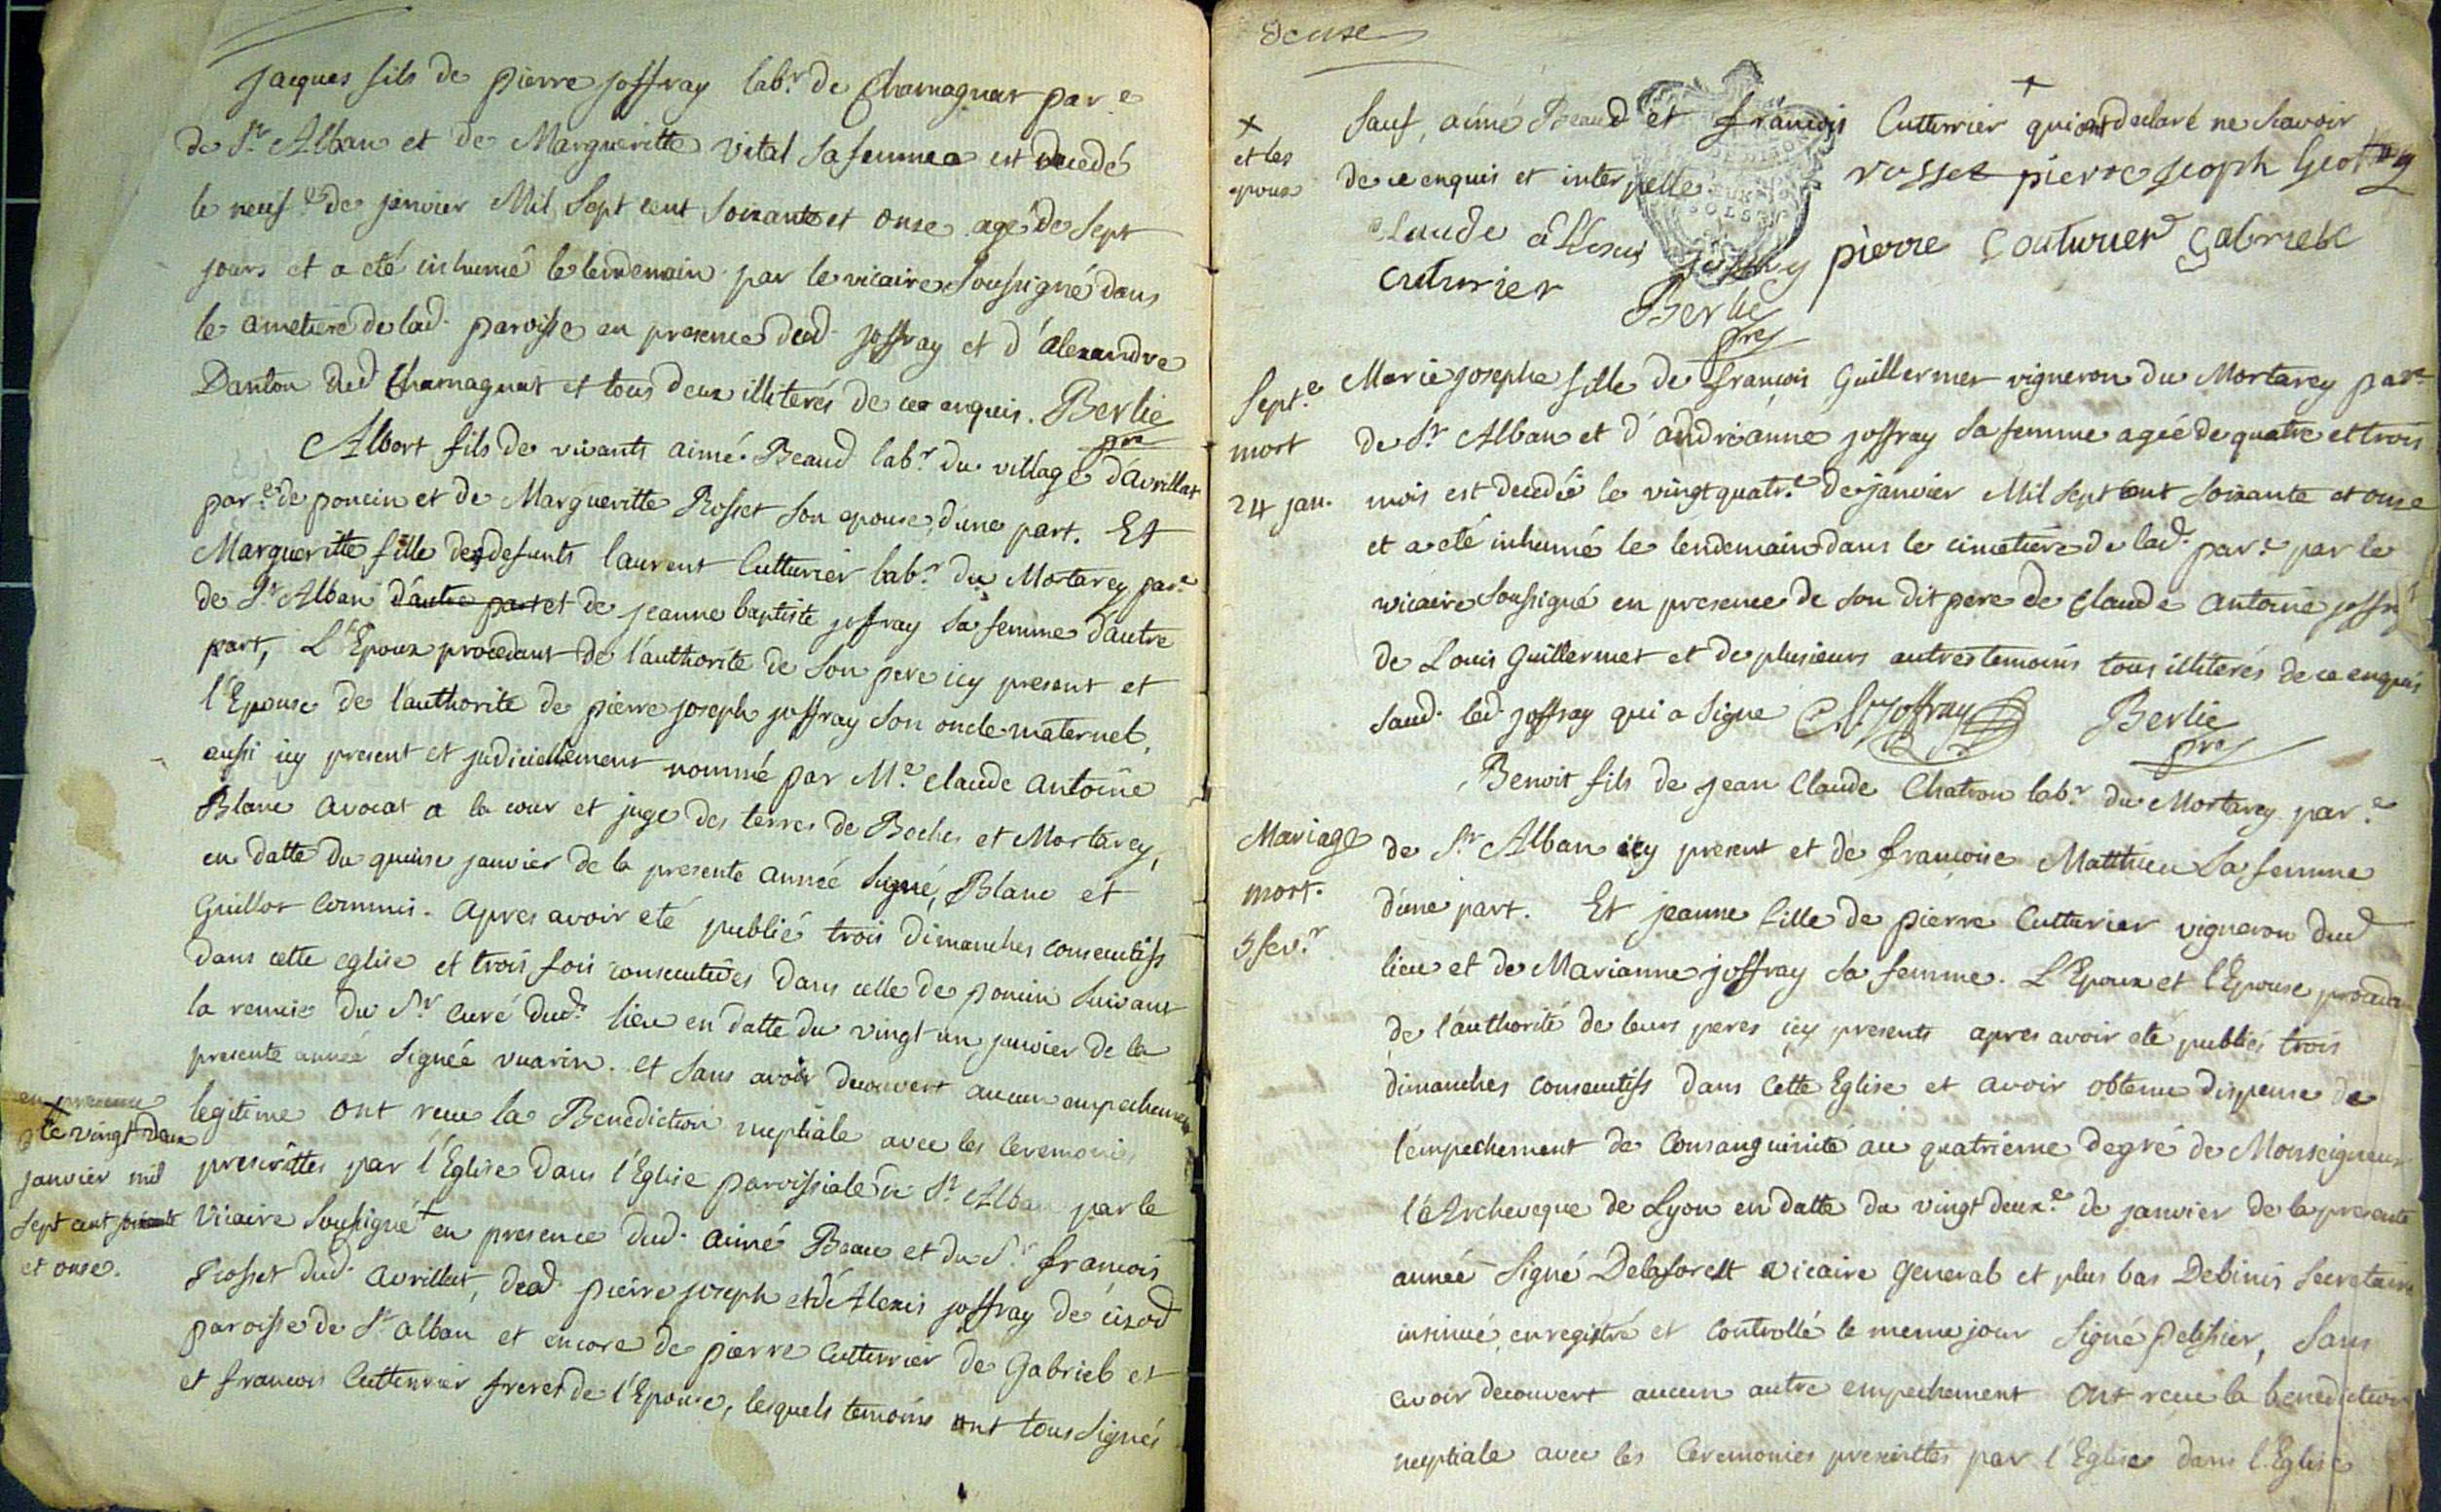 Jacques fils de pierre joffray lab.r de Chamagnat par e
de St Alban et de Margueritte Vital Sa femme est decedé
le neuf.e de janvier Mil Sept cent soixante et onze agé de Sept
jours et a eté inhumé le lendemain par le vicaire Soussigné dans
le cimetiere de lad. paroisse en presence dud. joffray et d'alexandre
Danton dud Chamagnat et tous deux illiterés de ce enquis. Berlie
pre
Albert fils de vivants aimé Beaud lab.r du village d'avrillat
par.e de poncin et de Margueritte Rosset son epouse, d'une part. Et
Margueritte fille des defunts laurent Cutturier lab.r du Mortarey par.e
de St Alban d'autre part et de jeanne baptiste joffray sa femme d'autre
part, L'Epoux procedant de l'authorité de son pere icy present et
l'Epouse de l'authorité de pierre joseph joffray son oncle maternel,
aussi icy present et judiciellement nommé par M.e claude antoine
Blanc avocat a la cour et juge des terres de Boches et Mortarey,
en datte du quinse janvier de la presente année signé, Blanc et
Guillot Commis. apres avoir eté publié trois dimanches consecutifs
dans cette eglise et trois fois consecutives dans celle de poncin suivant
la remise du Sr curé dud. lieu en datte du vingt un janvier de la
presente année signée vuarin. et sans avoir decouvert aucun empechement
legitime ont recue la Benediction nuptiale avec les ceremonies
en presence
+
le vingt deux
janvier mil
sept cent soixante
et onse.
prescrittes par l'Eglise dans l'Eglise paroissiale de St Alban par le
Vicaire Soussigné + en presence dud. aimé Beau et du Sr. francois
Rosset dud. avrillat, dud. pierre joseph et d'Alexis joffray de cizod
paroisse de St alban et encore de pierre Cutturrier de Gabriel et
et francois Cutturrier freres de l'Epouse, lesquels temoins ont tous signés
Sauf, aimé Beaud et francois Cutturrier + qui ont declaré ne scavoir
+
et les
epoux
de ce enquis et interpellé. rosset pierre
Claude pierre Couturier gabriele
cuturier
Berlie
pre
Sept.e
mort
24 jan.
Marie josephe fille de francois Guillermet vigneron du Mortarey par.e
de St Alban et d'andréanne joffray sa femme agée de quatre et trois
mois est decedée le vingt quatr.e de janvier Mil sept cent soixante et onse
et a eté inhumé le lendemain dans le cimetiere de lad. par.e par le
vicaire soussigné en presence de son dit pere de Claude antoine joffr
de Louis Guillermet et de plusieurs autres temoins tous illiterés de ce enquis
sauf led joffray qui a signé Joffray Berlie
pre
Mariage
mort.
5 fev.r
Benoit fils de jean Claude Chatron lab.r du Mortarey par.e
de St Alban icy present et de francoise Matthieu sa femme
d'une part. Et jeanne fille de pierre Cutturier vigneron dud
lieu et de Marianne joffray sa femme. L'Epoux et l'Epouse
de l'authorité de leurs peres icy presents apres avoir eté publiés trois
dimanches consecutifs dans cette Eglise et avoir obtenu dispense de
l'empechement de Consanguinité au quatrieme degré de Monseigneur
l'Archeveque de Lyon en datte du vingt deux.e de janvier de la presente
année signé Delaforest vicaire general et plus bas Debinis secretaire
insinué, enregistré et Controllé le meme jour signé pelissier, sans
avoir decouvert aucun autre empechement ont recue la benediction
nuptiale avec les ceremonies prescrittes par l'Eglise dans l'Eglise